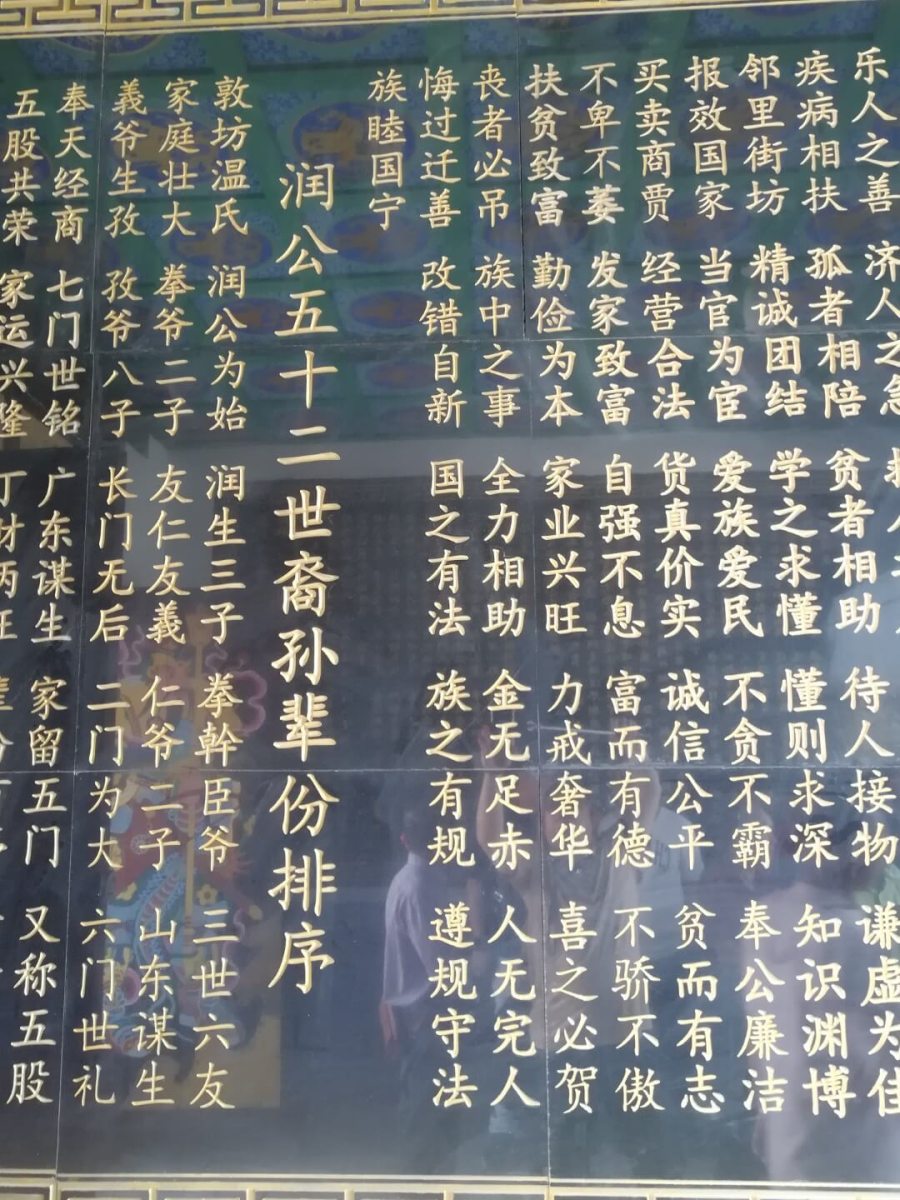 乐人之善 济人之急
疾病相扶 孤者相陪 贫者相助 待人接物 谦虚为佳
邻里街坊 精诚团结 学之求懂 懂则求深 知识渊博
报效国家 当官为宦 爱族爱民 不贪不霸 奉公廉洁
买卖商贾 经营合法 货真价实 诚信公平 贫而有志
不卑不萎 发家致富 自强不息 富而有德 不骄不傲
扶贫致富 勤俭为本 家业兴旺 力戒奢华 喜之必贺
丧者必吊 族中之事 全力相助 金无足赤 人无完人
悔过迁善 改错自新 国之有法 族之有规 遵规守法
族睦国宁
润公五十二世裔孙辈份排序
敦坊温氏 润公为始 润生三子 拳幹臣爷 三世六友
家庭壮大 拳爷二子 友仁友義 仁爷二子 山东谋生
義爷生孜 孜爷八子 长门无后 二门为大 六门世礼
奉天经商 七门世铭 广东谋生 家留五门 又称五股
五股共荣 家运兴隆 丁财两旺